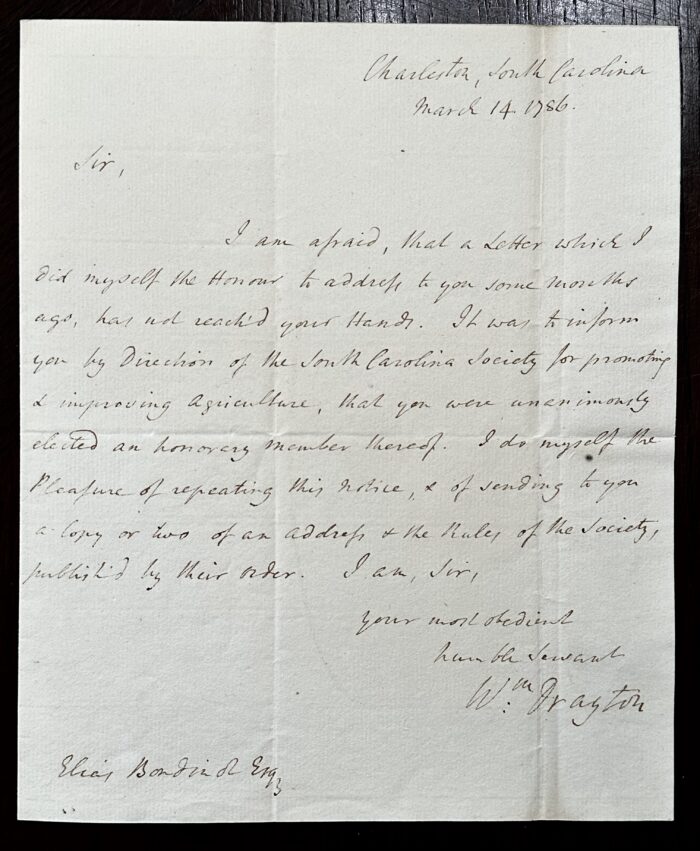 Charleston, South Carolina
March 14. 1786.
Sir,
I am afraid, that a Letter which I
did myself the Honour to address to you some months
ago, has not reach'd your Hands. It was to inform
you by Direction of the South Carolina Society for promoting
& improving Agriculture, that you were unanimously
elected an honorary member thereof. I do myself the
Pleasure of repeating this Notice, & of sending to you
a Copy or two of an Address & the Rules of the Society,
publish'd by their Order. I am, Sir,
your most obedient
humble Servant
Wm. Drayton
Elias Boudinot Esq